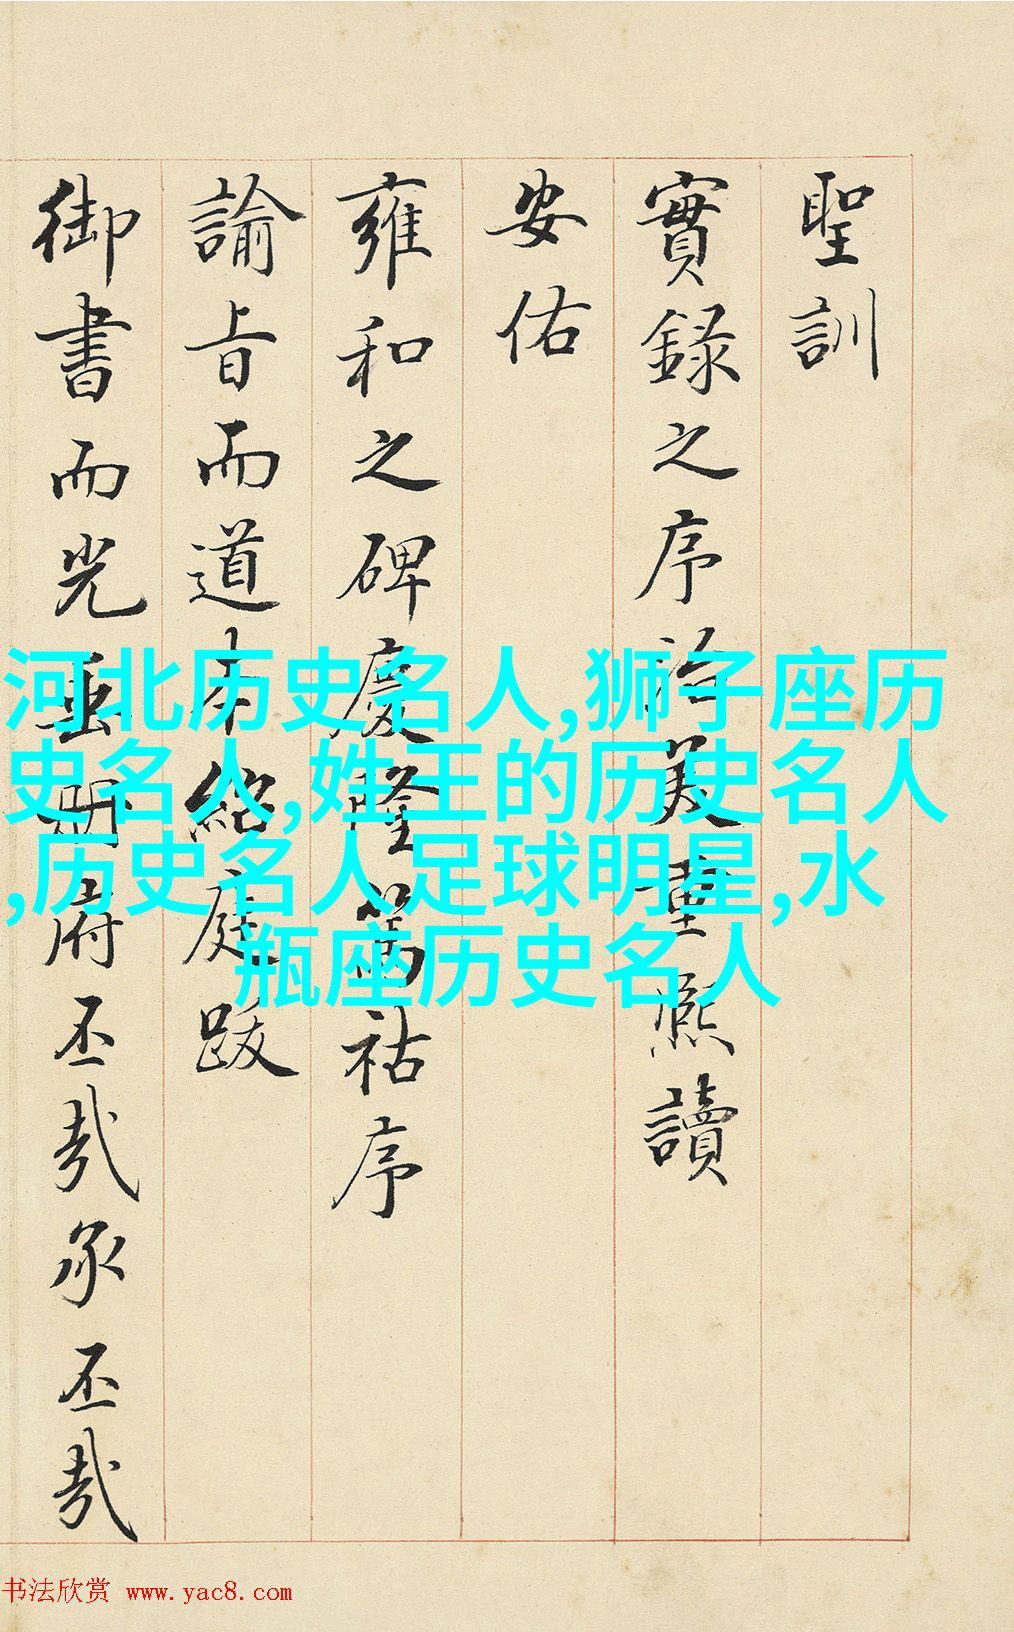 聖訓
實錄之序詒美重熙讀
安佑
雍和之碑慶隆篤祜序
諭旨而道本紹庭跋
御書而光垂册府丕哉承丕哉
河北历史名人,狮子座历
史名人,姓王的历史名人
,历史名人足球明星,水
瓶座历史名人
书法欣赏 www.yac8.com